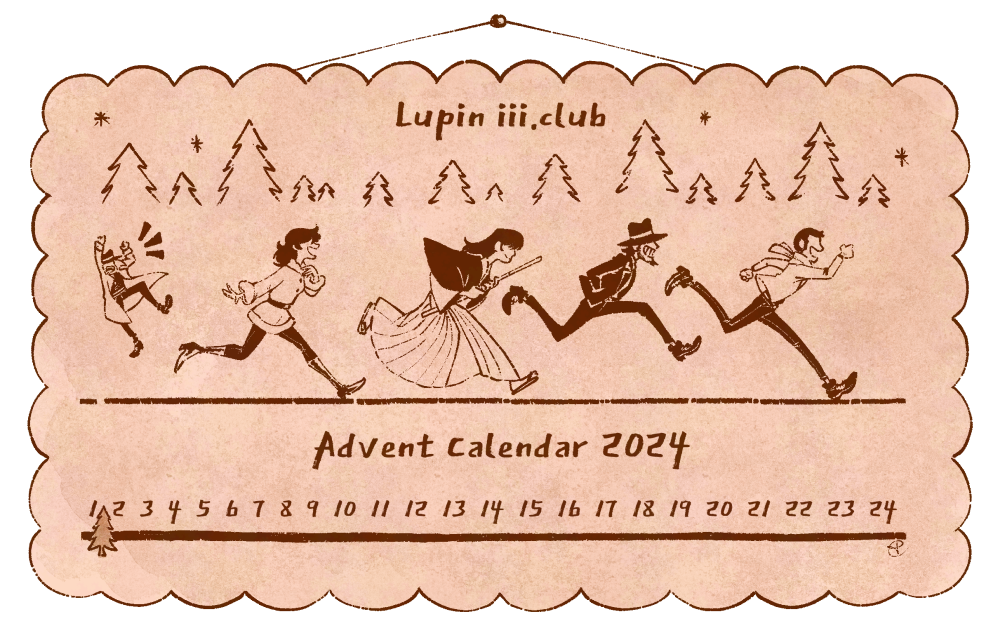 Lupin iii.club
Advent Calendar 2024
1 2 3 4 5 6 7 8 9 10 11 12 13 14 15 16 17 18 19 20 21 22 23 24